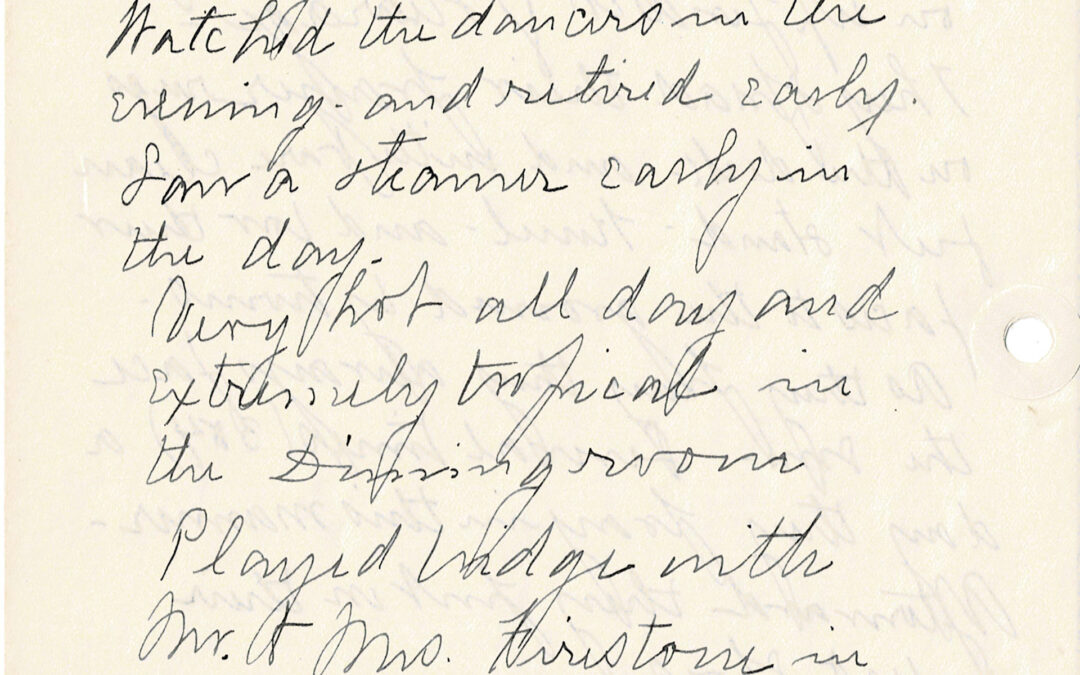 Watched the dancers in the
evening. and retired early.
Saw a steamer early in
the day.
Very hot all day and
extremely tropical in
the Diningroom
Played bridge with
Mr. & Mrs. Firestone in